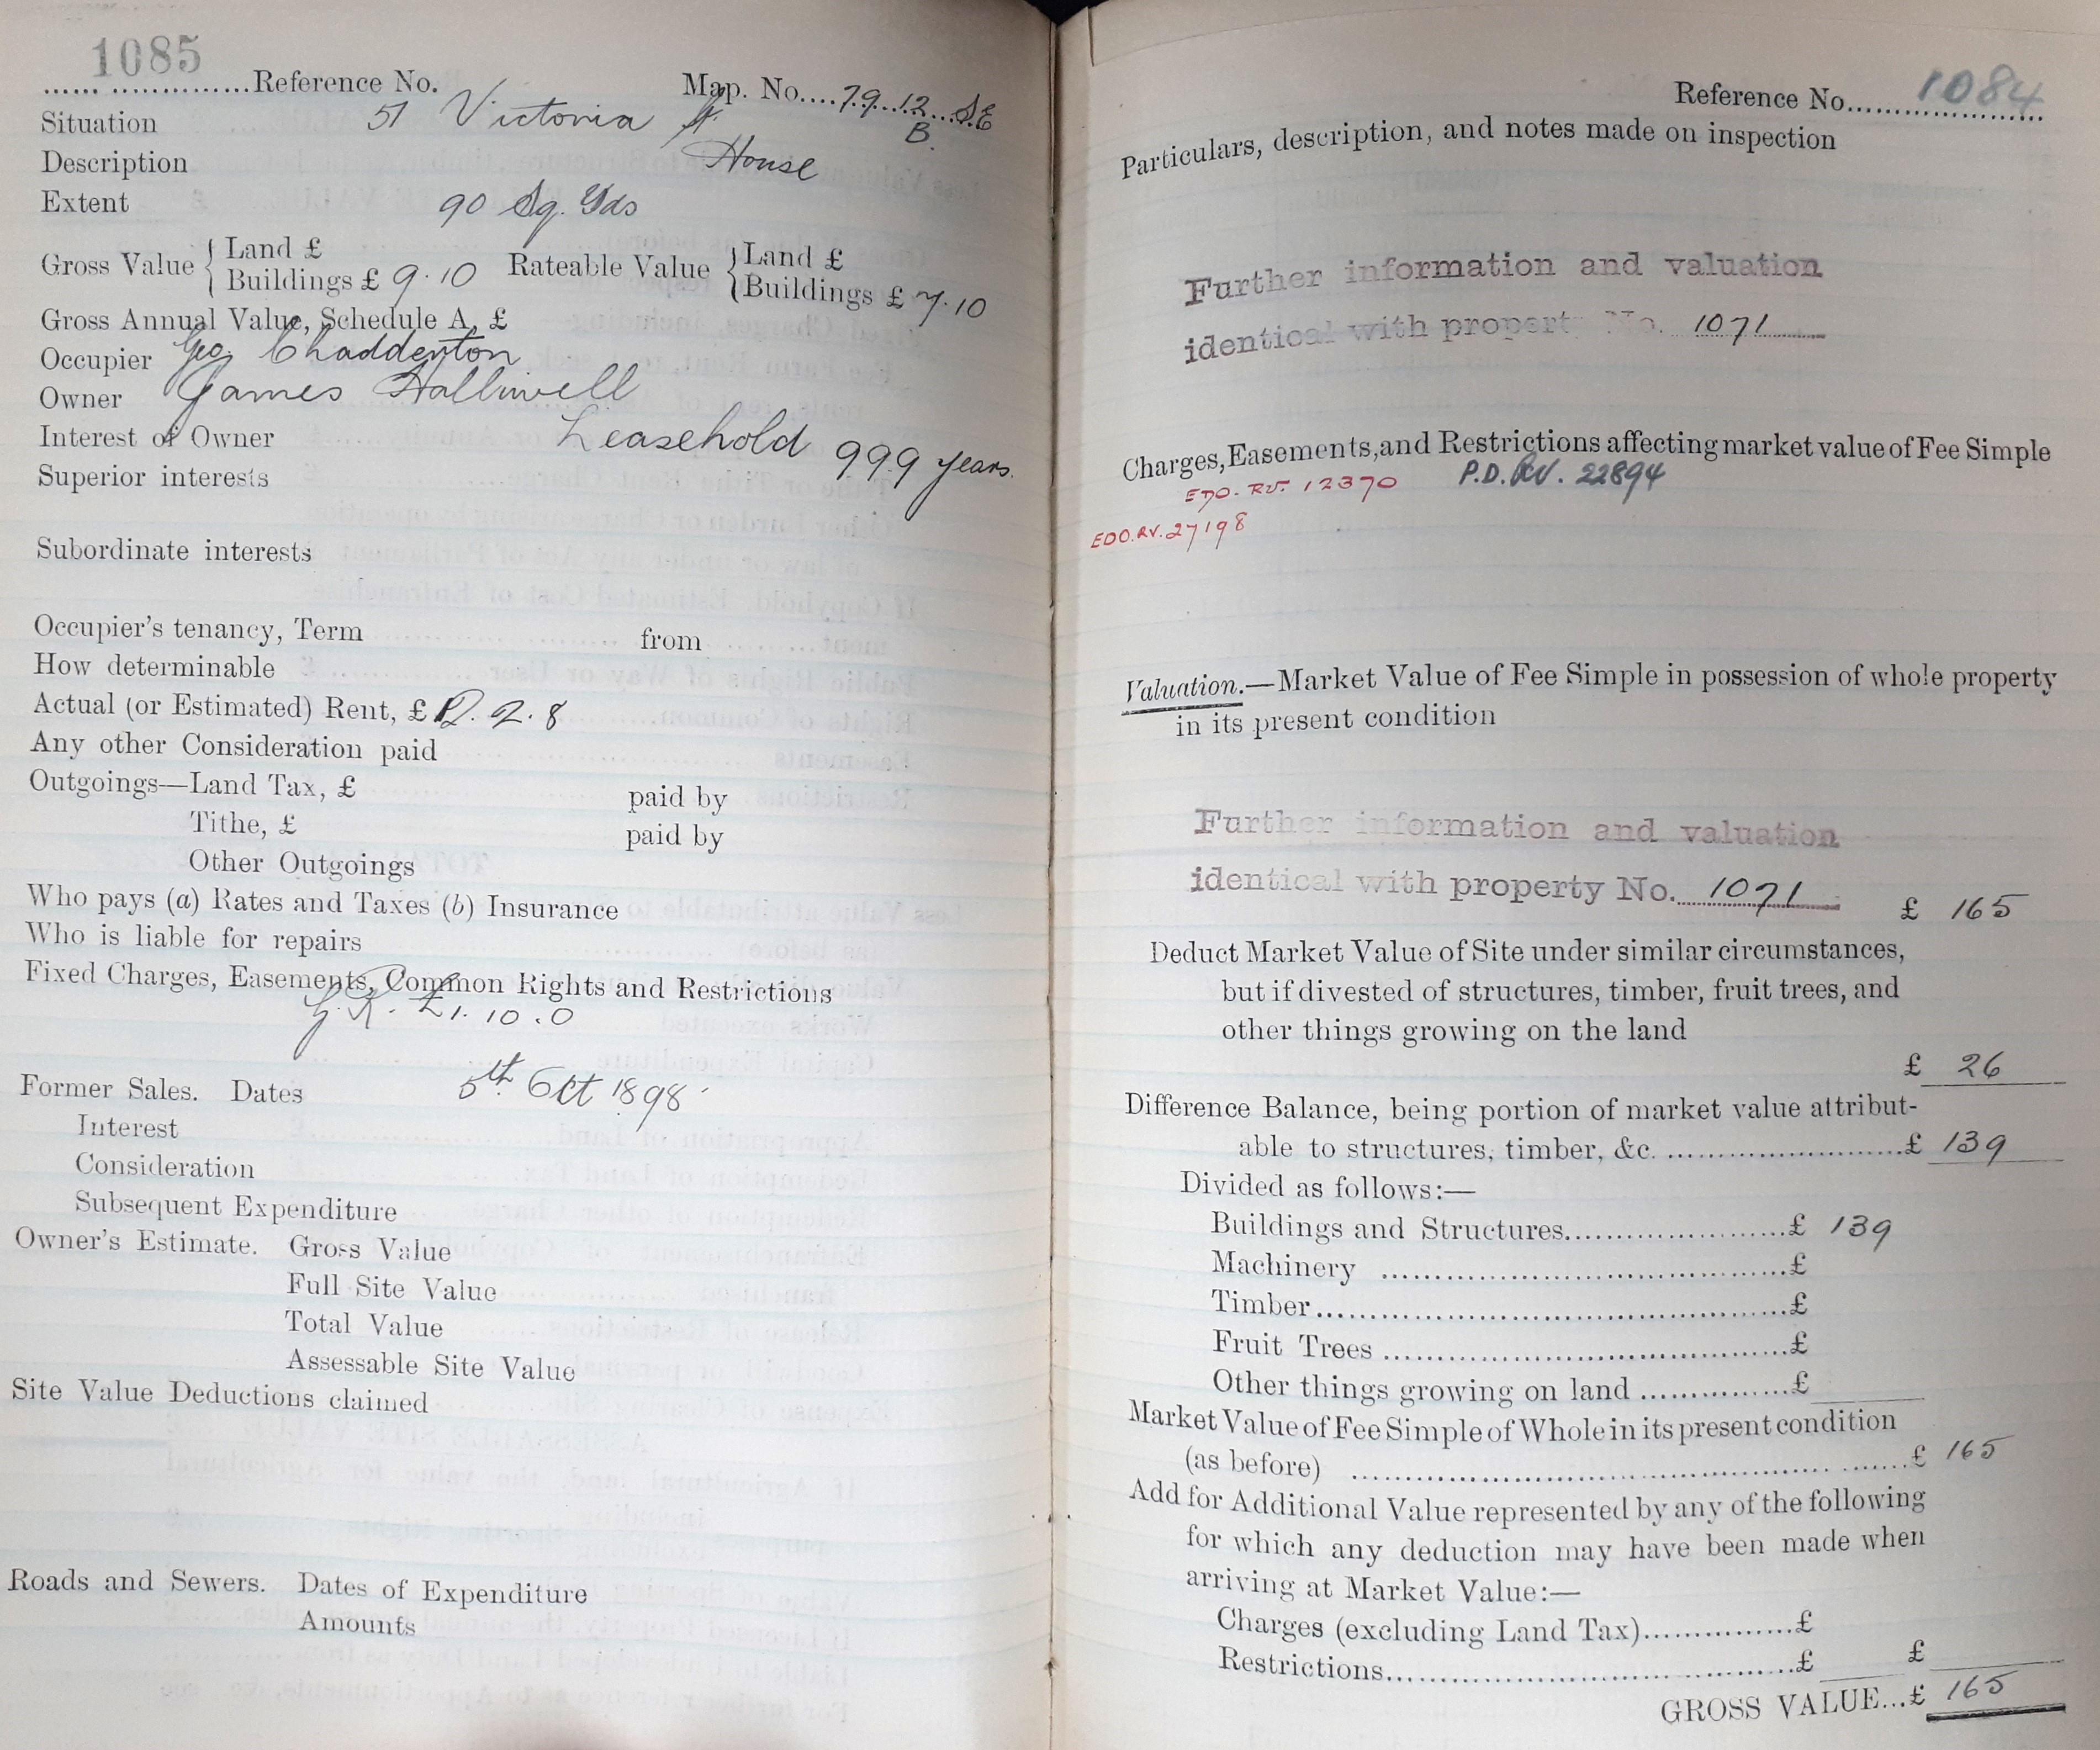 1085
...... ...............Reference No. Map. No....79..12...SE
B.
Situation 51 Victoria St.
Description House
Extent 90 Sq. Yds
Gross Value { Land £
Buildings £ 9.10
Rateable Value { Land £
Buildings £ 7.10
Gross Annual Value, Schedule A, £
Occupier Geo Chadderton
Owner James Halliwell
Interest of Owner Leasehold 999 years.
Superior interests
Subordinate interests
Occupier's tenancy, Term from
How determinable
Actual (or Estimated) Rent, £ 12. 2. 8
Any other Consideration paid
Outgoings—Land Tax, £ paid by
Tithe, £ paid by
Other Outgoings
Who pays (a) Rates and Taxes (b) Insurance
Who is liable for repairs
Fixed Charges, Easements, Common Rights and Restrictions
G.R. £1. 10. 0
Former Sales. Dates 5th Oct 1898
Interest
Consideration
Subsequent Expenditure
Owner's Estimate. Gross Value
Full Site Value
Total Value
Assessable Site Value
Site Value Deductions claimed
Roads and Sewers. Dates of Expenditure
Amounts
Reference No. 1084
Particulars, description, and notes made on inspection
Further information and valuation
identical with property No. 1071
Charges, Easements, and Restrictions affecting market value of Fee Simple
EDO. RV. 12370 P.D. RV. 22894
EDO. RV. 27198
Valuation.—Market Value of Fee Simple in possession of whole property
in its present condition
Further information and valuation
identical with property No. 1071
£ 165
Deduct Market Value of Site under similar circumstances,
but if divested of structures, timber, fruit trees, and
other things growing on the land
£ 26
Difference Balance, being portion of market value attribut-
able to structures, timber, &c. ........................£ 139
Divided as follows:—
Buildings and Structures.......................£ 139
Machinery ........................................£
Timber...............................................£
Fruit Trees ........................................£
Other things growing on land ...............£
Market Value of Fee Simple of Whole in its present condition
(as before) ........................................£ 165
Add for Additional Value represented by any of the following
for which any deduction may have been made when
arriving at Market Value:—
Charges (excluding Land Tax)...............£
Restrictions.........................................£ £
GROSS VALUE...£ 165